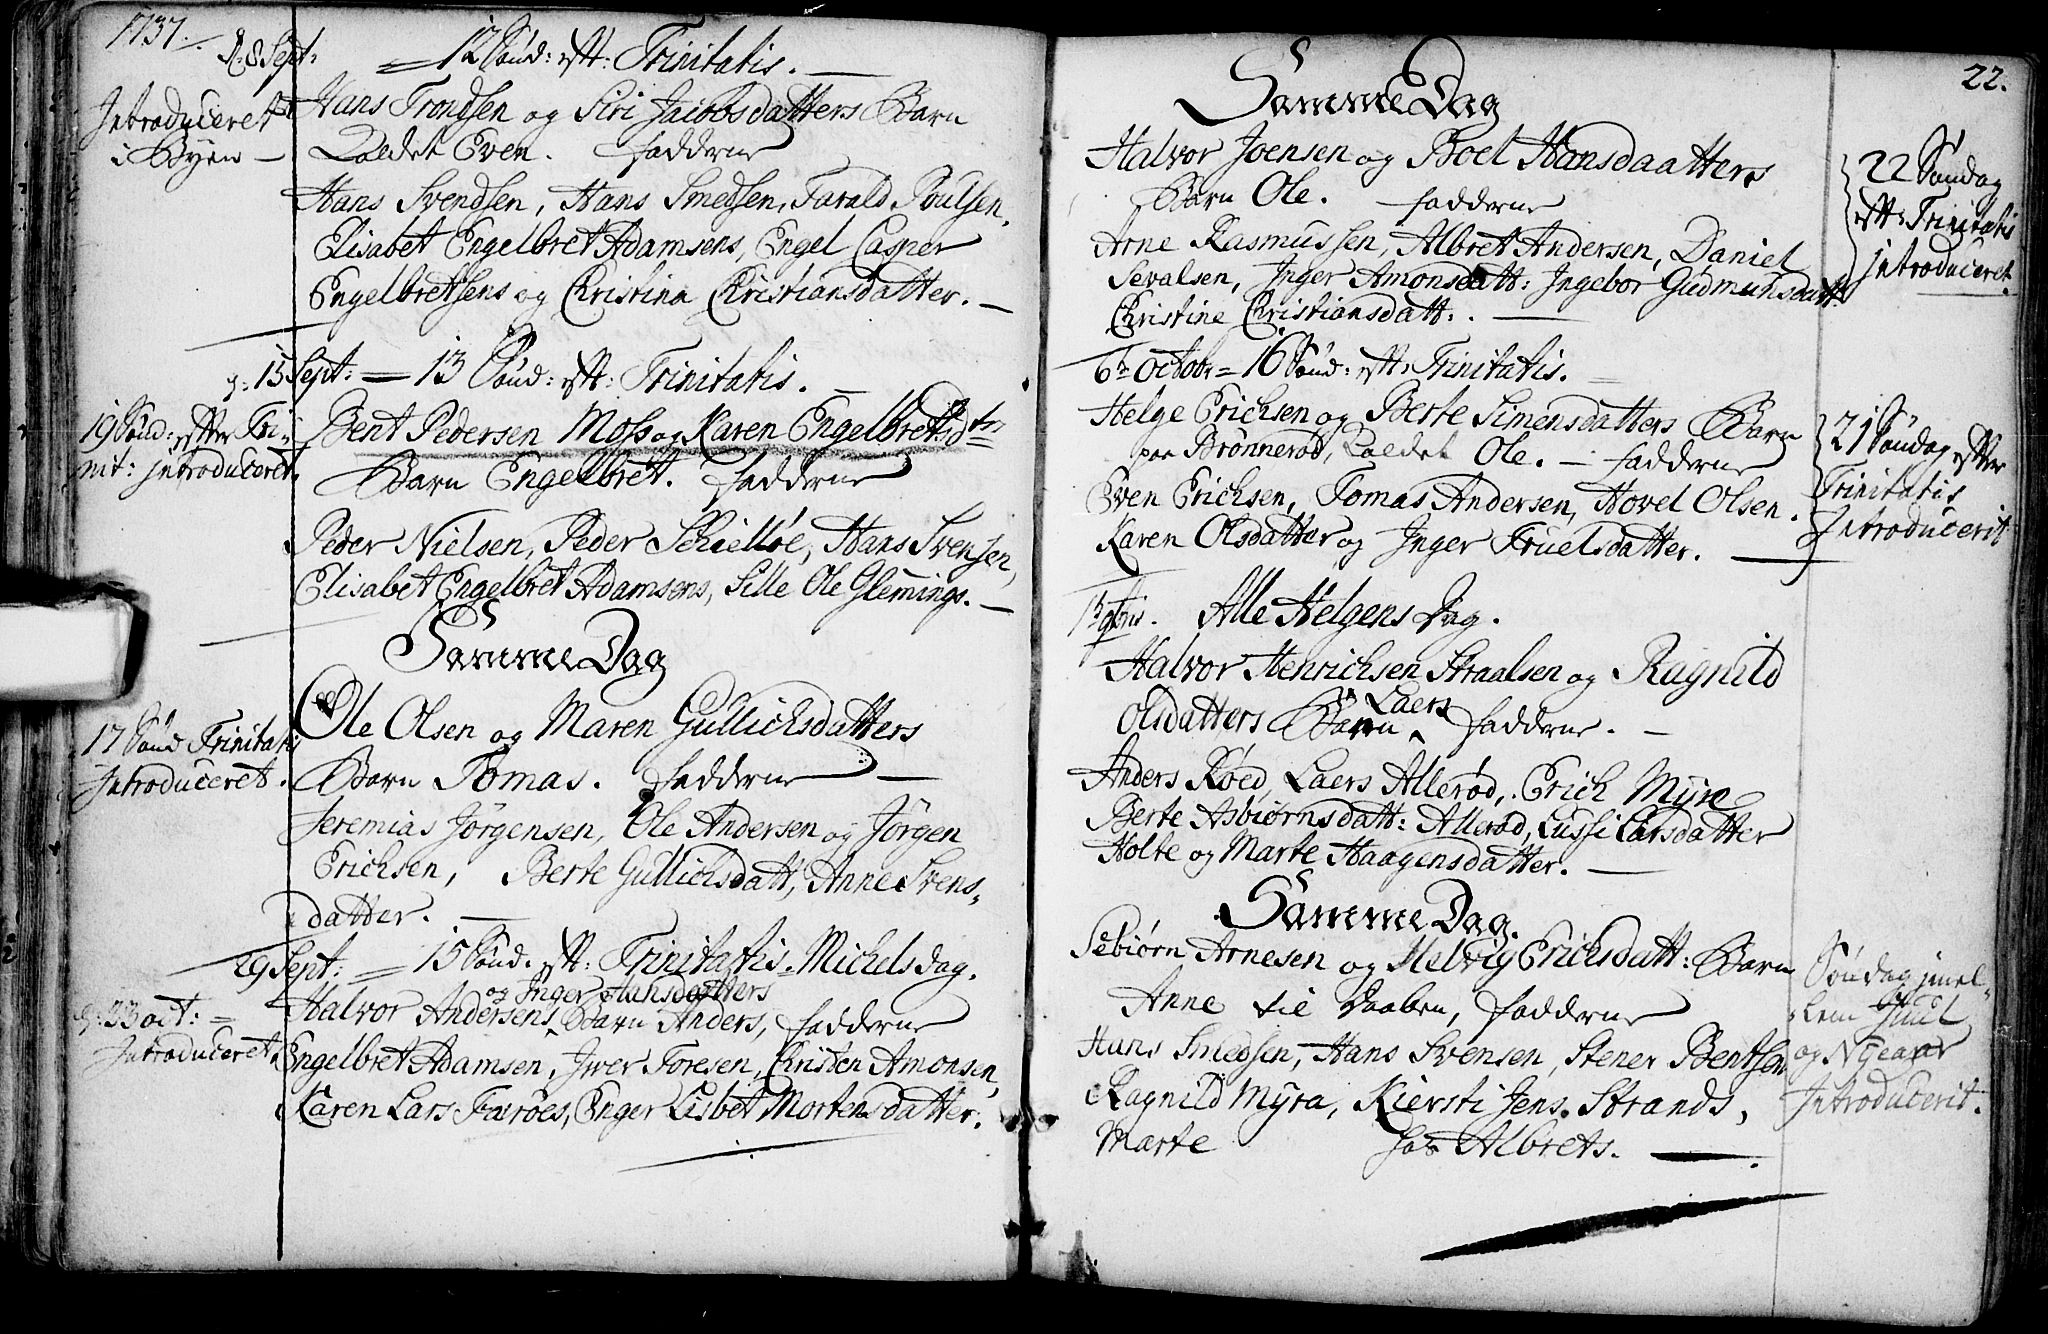 1737.
d. 8 Sept: = 12 Sønd: eftt: Trinitatis. —
Introduceret
i Byen —
Hans Trondsen og Siri Jacobsdatters Barn
Kaldet Even. Fadderne
Hans Svendsen, Hans Smedsen, Tarald Poulsen,
Elisabet Engelbret Adamsens, Engel Casper
Engelbretsens og Christina Christiansdatter. —
d: 15 Sept: — 13 Sønd: eftt: Trinitatis. —
19 Sønd: efter Tri-
nit: introduceret.
Bent Pedersen Moss og Karen Engelbretsdtr
Barn Engelbret. Fadderne
Peder Nielsen, Peder Schielløe, Hans Svensen,
Elisabet Engelbret Adamsens, Sille Ole Glemmings. —
Samme Dag
17 Sønd Trinitatis
Introduceret.
Ole Olsen og Maren Gullichsdatters
Barn Tomas. Fadderne —
Jeremias Jørgensen, Ole Andersen og Jørgen
Erichsen, Berte Gullichsdatt, Anne Svens-
datter. —
29 Sept: = 15 Sønd. eftt: Trinitatis. Michelsdag.
d: 23 oct: =
Introduceret.
og Inger Hansdatters
Halvor Andersens Barn Anders, Fadderne
Engelbret Adamsen, Iwer Toresen, Christen Amonsen,
Karen Lars Færøes, Enger Lisbet Mortensdatter.
22.
Samme Dag
Halvor Joensen og Boel Hansdaatters
Barn Ole. Fadderne
22 Søndag
eftt: Trinitatis
introduceret.
Arne Rasmussen, Albret Andersen, Daniel
Sevalsen, Inger Amonsdatt: Ingebor Gudmunsdatt:
Christine Christiansdatt: . —
6te Octobr = 16 Sønd: eftt: Trinitatis. =
Helge Erichsen og Berte Simensdatters Barn
paa Brønnerød, Kaldet Ole. — Fadderne
21 Søndag efter
Trinitatis
Introducerit
Even Erichsen, Tomas Andersen, Hovel Olsen.
Karen Olsdatter og Inger Truelsdatter. —
1te 9bris. Alle Helgens Dag.
Halvor Henrichsen Straalsen og Ragnild
Laers
Olsdatters Barn Fadderne. —
Anders Røed, Laers Allerød, Erich Myra
Berte Asbiørnsdatt: Allerød, Lussi Larsdatter
Holte og Marte Haagensdatter. —
Samme Dag.
Sebiørn Arnesen og Helvig Erichsdatt: Barn
Anne til Daaben, Fadderne
Søndag imel-
lem Juul
og Nyeaar
Introducerit.
Hans Smedsen, Hans Svensen, Stener Bentsen
Ragnild Myra, Kiersti Jens Strands,
Marte hos Albrets. —